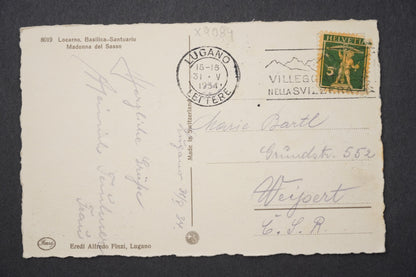 8019 Locarno, Basilica-Santuario
Madonna del Sasso
X9089
LUGANO
15-16
31·V
1934
LETTERE
VILLEGG
NELLA SVIZZERA
HELVETIA
5
Herzliche Grüße
Heinrich
Frau
Lugano 31/5 34
Made in Switzerland
Marie Bartl
Grundstr. 552
Weipert
Č.S.R.
Eredi Alfredo Finzi, Lugano